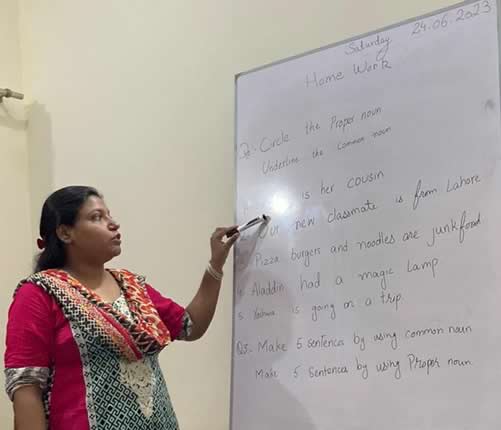 Saturday 24.06.2023
Home Work
Circle the Proper noun
Underline the Common noun
is her cousin
Our new classmate is from Lahore
Pizza burgers and noodles are junkfood
4 Aladdin had a magic lamp
5 Yashwa is going on a trip
Q3:- Make 5 sentences by using common noun
Make 5 sentences by using Proper noun